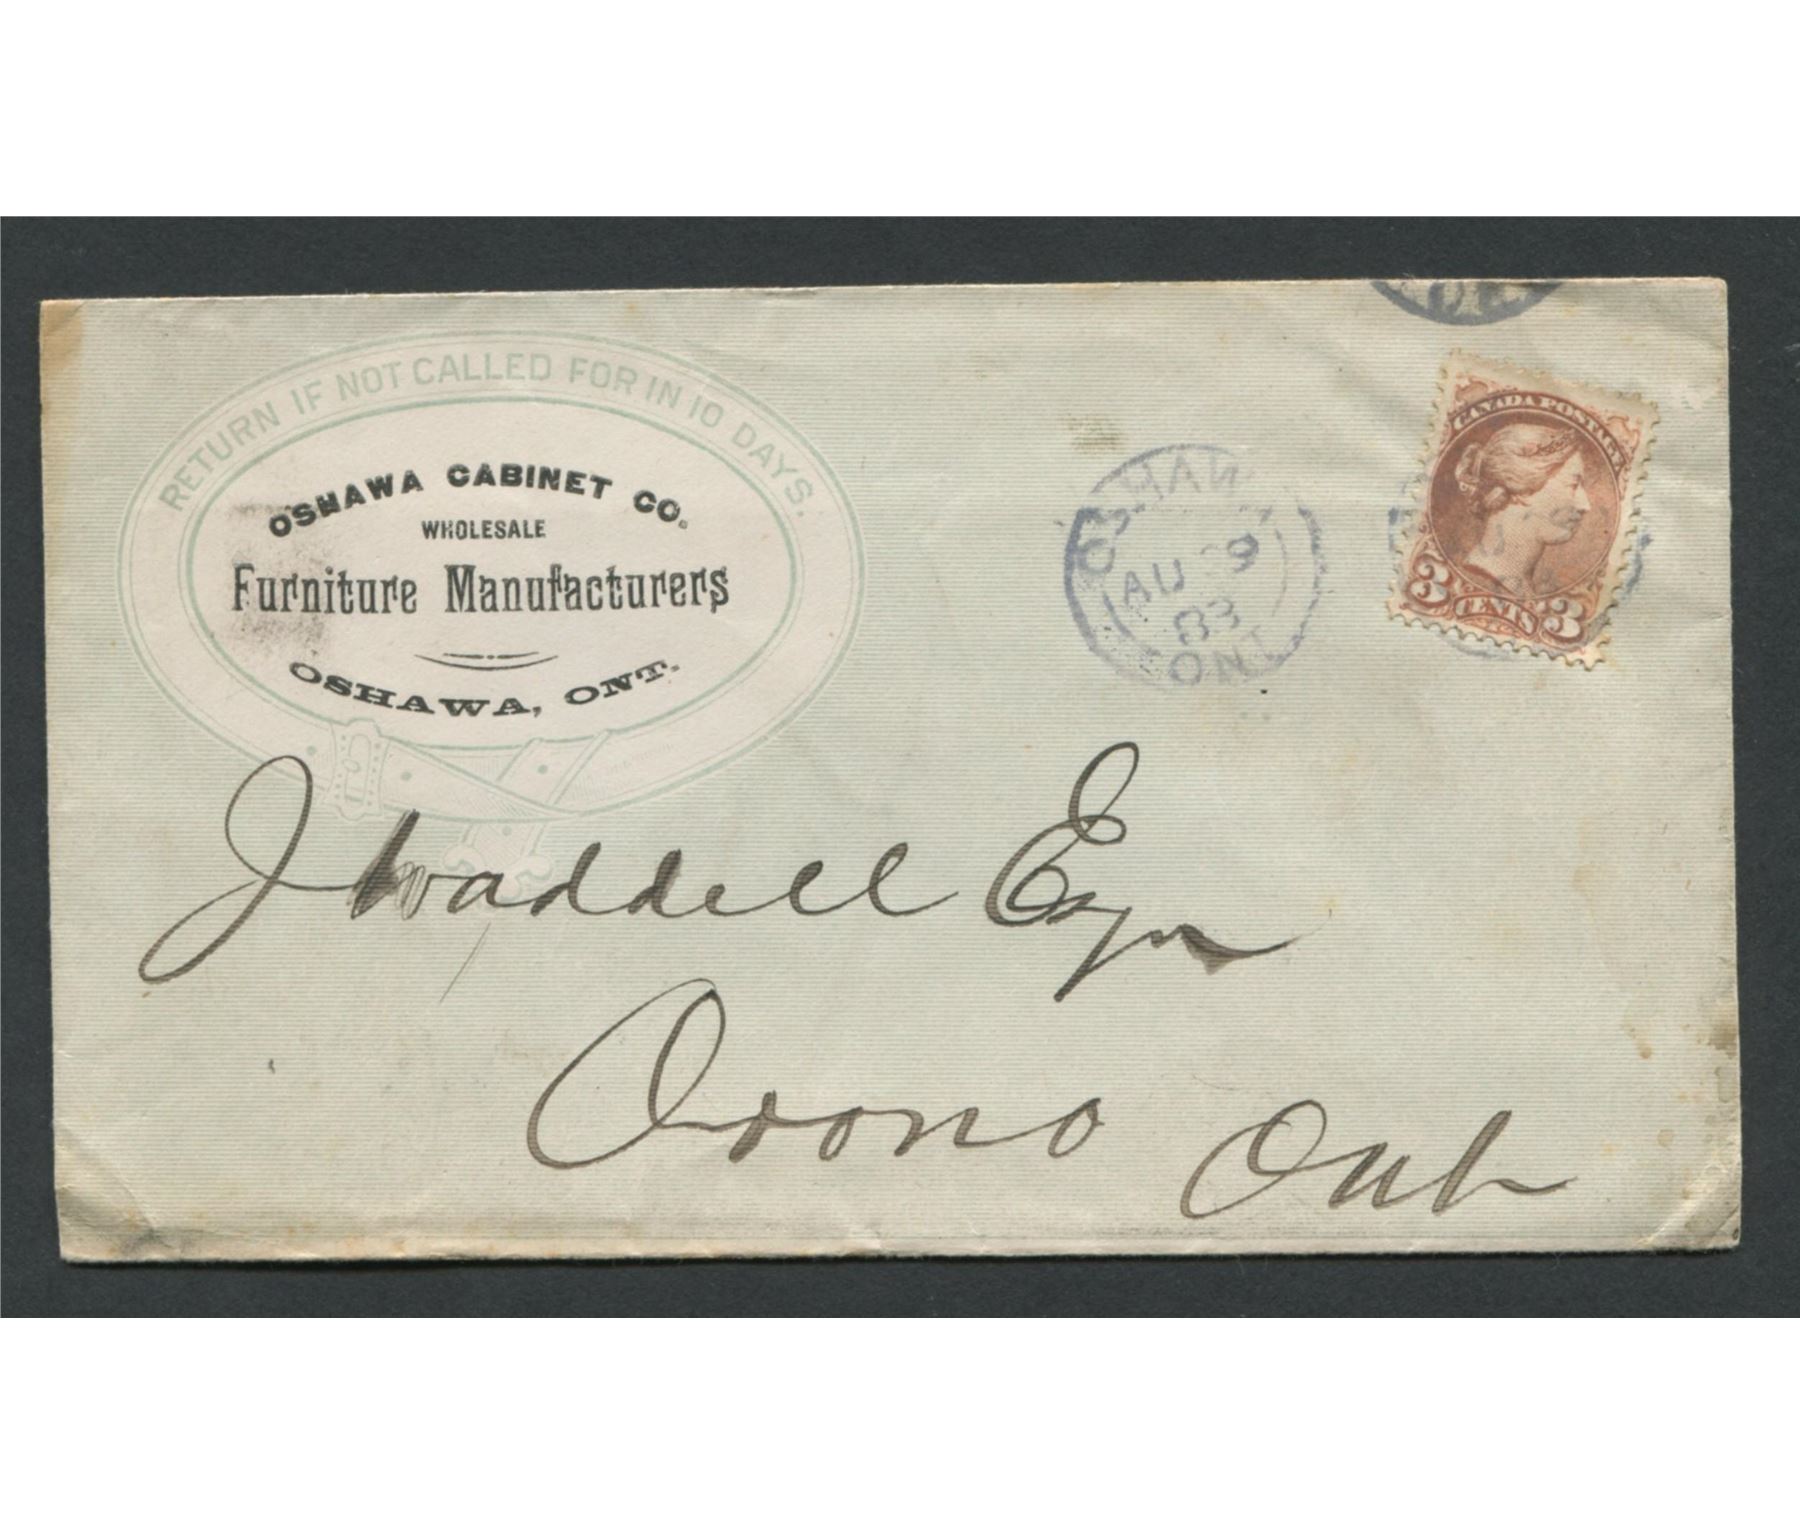 RETURN IF NOT CALLED FOR IN 10 DAYS.
OSHAWA CABINET CO.
WHOLESALE
Furniture Manufacturers
OSHAWA, ONT.
OSHAWA
AU 9
83
ONT
CANADA POSTAGE
3 CENTS 3
J Waddell Esq
Orono Ont